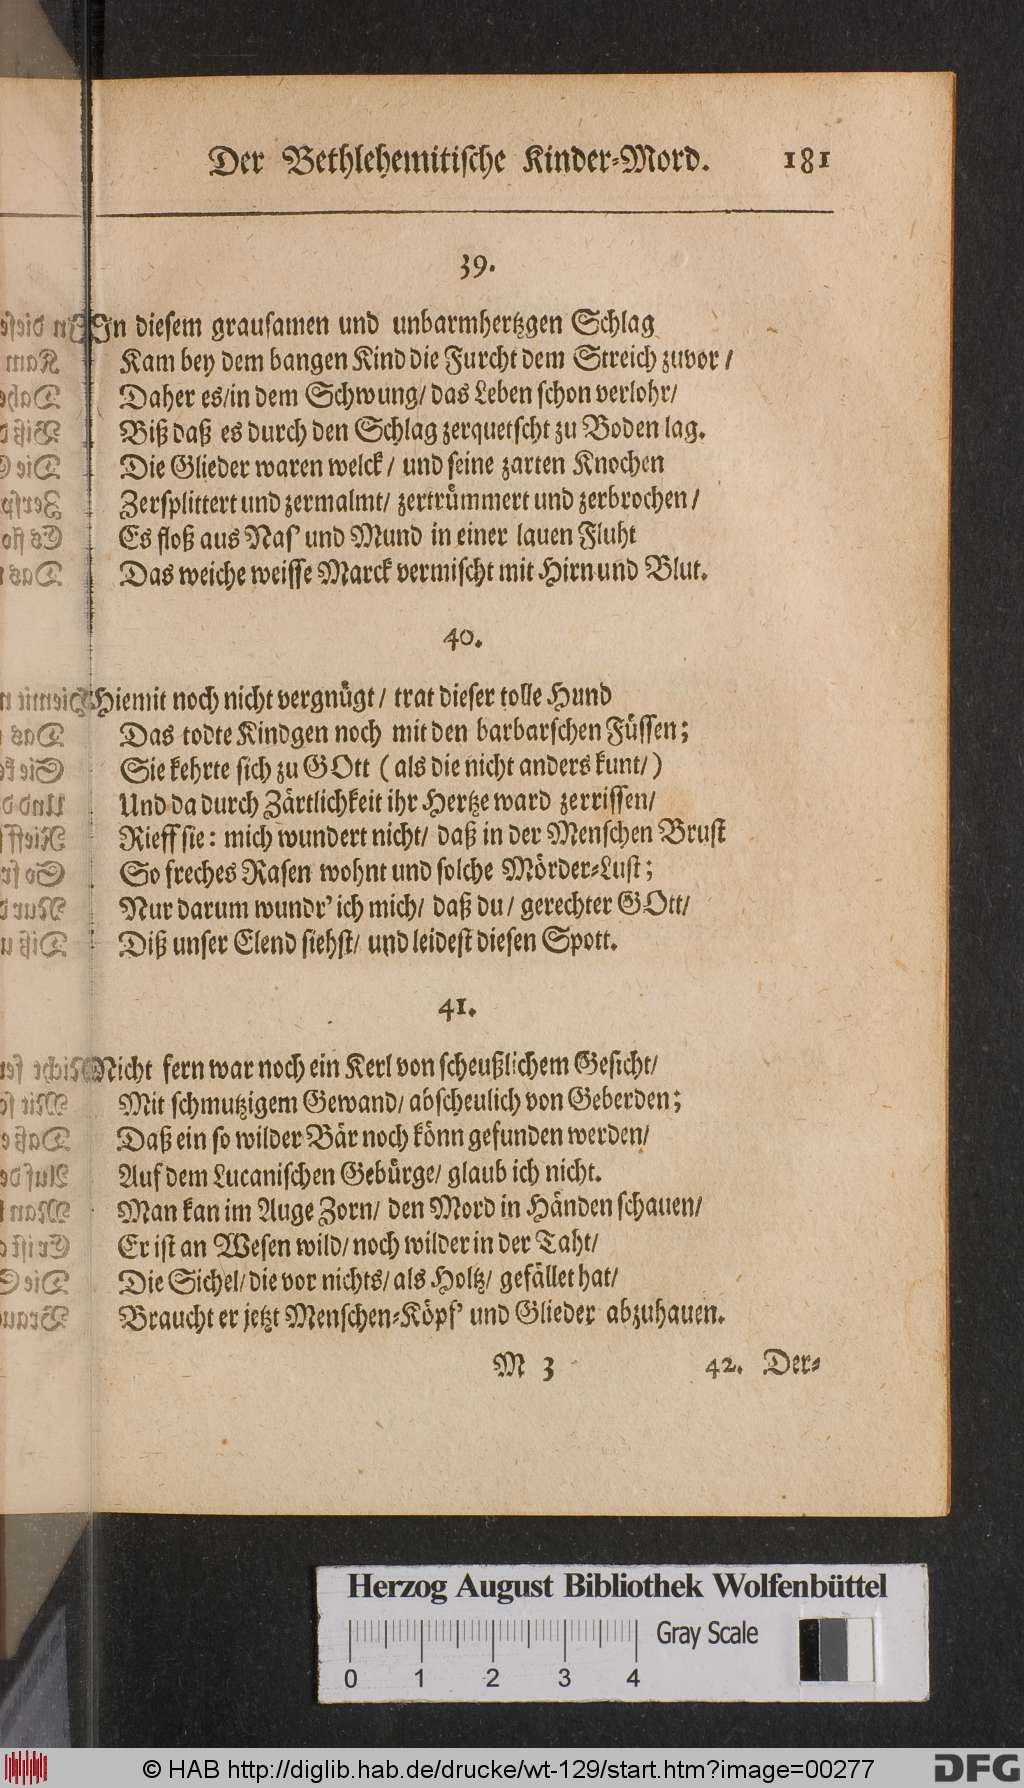 Der Bethlehemitische Kinder-Mord. 181
39.
In diesem grausamen und unbarmhertzgen Schlag
Kam bey dem bangen Kind die Furcht dem Streich zuvor /
Daher es/ in dem Schwung/ das Leben schon verlohr/
Biß daß es durch den Schlag zerquetscht zu Boden lag.
Die Glieder waren welck / und seine zarten Knochen
Zersplittert und zermalmt/ zertrümmert und zerbrochen /
Es floß aus Nas' und Mund in einer lauen Fluht
Das weiche weisse Marck vermischt mit Hirn und Blut.
40.
Hiemit noch nicht vergnügt / trat dieser tolle Hund
Das todte Kindgen noch mit den barbarschen Füssen;
Sie kehrte sich zu GOtt (als die nicht anders kunt/)
Und da durch Zärtlichkeit ihr Hertze ward zerrissen/
Rieff sie: mich wundert nicht/ daß in der Menschen Brust
So freches Rasen wohnt und solche Mörder-Lust;
Nur darum wundr' ich mich/ daß du / gerechter GOtt/
Diß unser Elend siehst/ und leidest diesen Spott.
41.
Nicht fern war noch ein Kerl von scheußlichem Gesicht/
Mit schmutzigem Gewand/ abscheulich von Geberden;
Daß ein so wilder Bär noch könn gefunden werden/
Auf dem Lucanischen Gebürge/ glaub ich nicht.
Man kan im Auge Zorn/ den Mord in Händen schauen/
Er ist an Wesen wild/ noch wilder in der Taht/
Die Sichel/ die vor nichts/ als Holtz/ gefället hat/
Braucht er jetzt Menschen-Köpf' und Glieder abzuhauen.
M 3 42. Der-
Herzog August Bibliothek Wolfenbüttel
Gray Scale
0 1 2 3 4
© HAB http://diglib.hab.de/drucke/wt-129/start.htm?image=00277
DFG